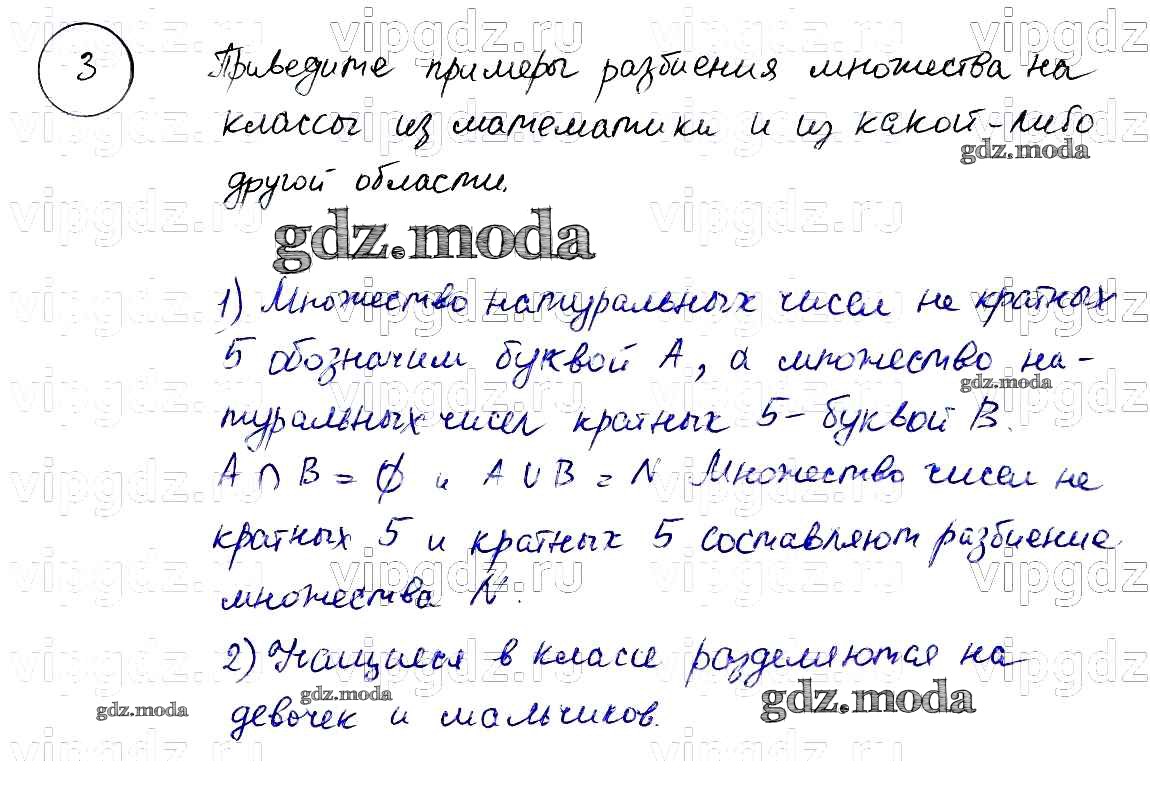 3
Приведите примеры разбиения множества на
классы из математики и из какой-либо
другой области.
gdz.moda
gdz.moda
1) Множество натуральных чисел не кратных
5 обозначим буквой А, а множество на-
gdz.moda
туральных чисел кратных 5 - буквой В.
A ∩ B = ∅ и A ∪ B = N Множество чисел не
кратных 5 и кратных 5 составляют разбиение
множества N.
2) Учащиеся в классе разделяются на
gdz.moda gdz.moda gdz.moda
девочек и мальчиков.
vipgdz.ru vipgdz.ru vipgdz.ru vipgdz